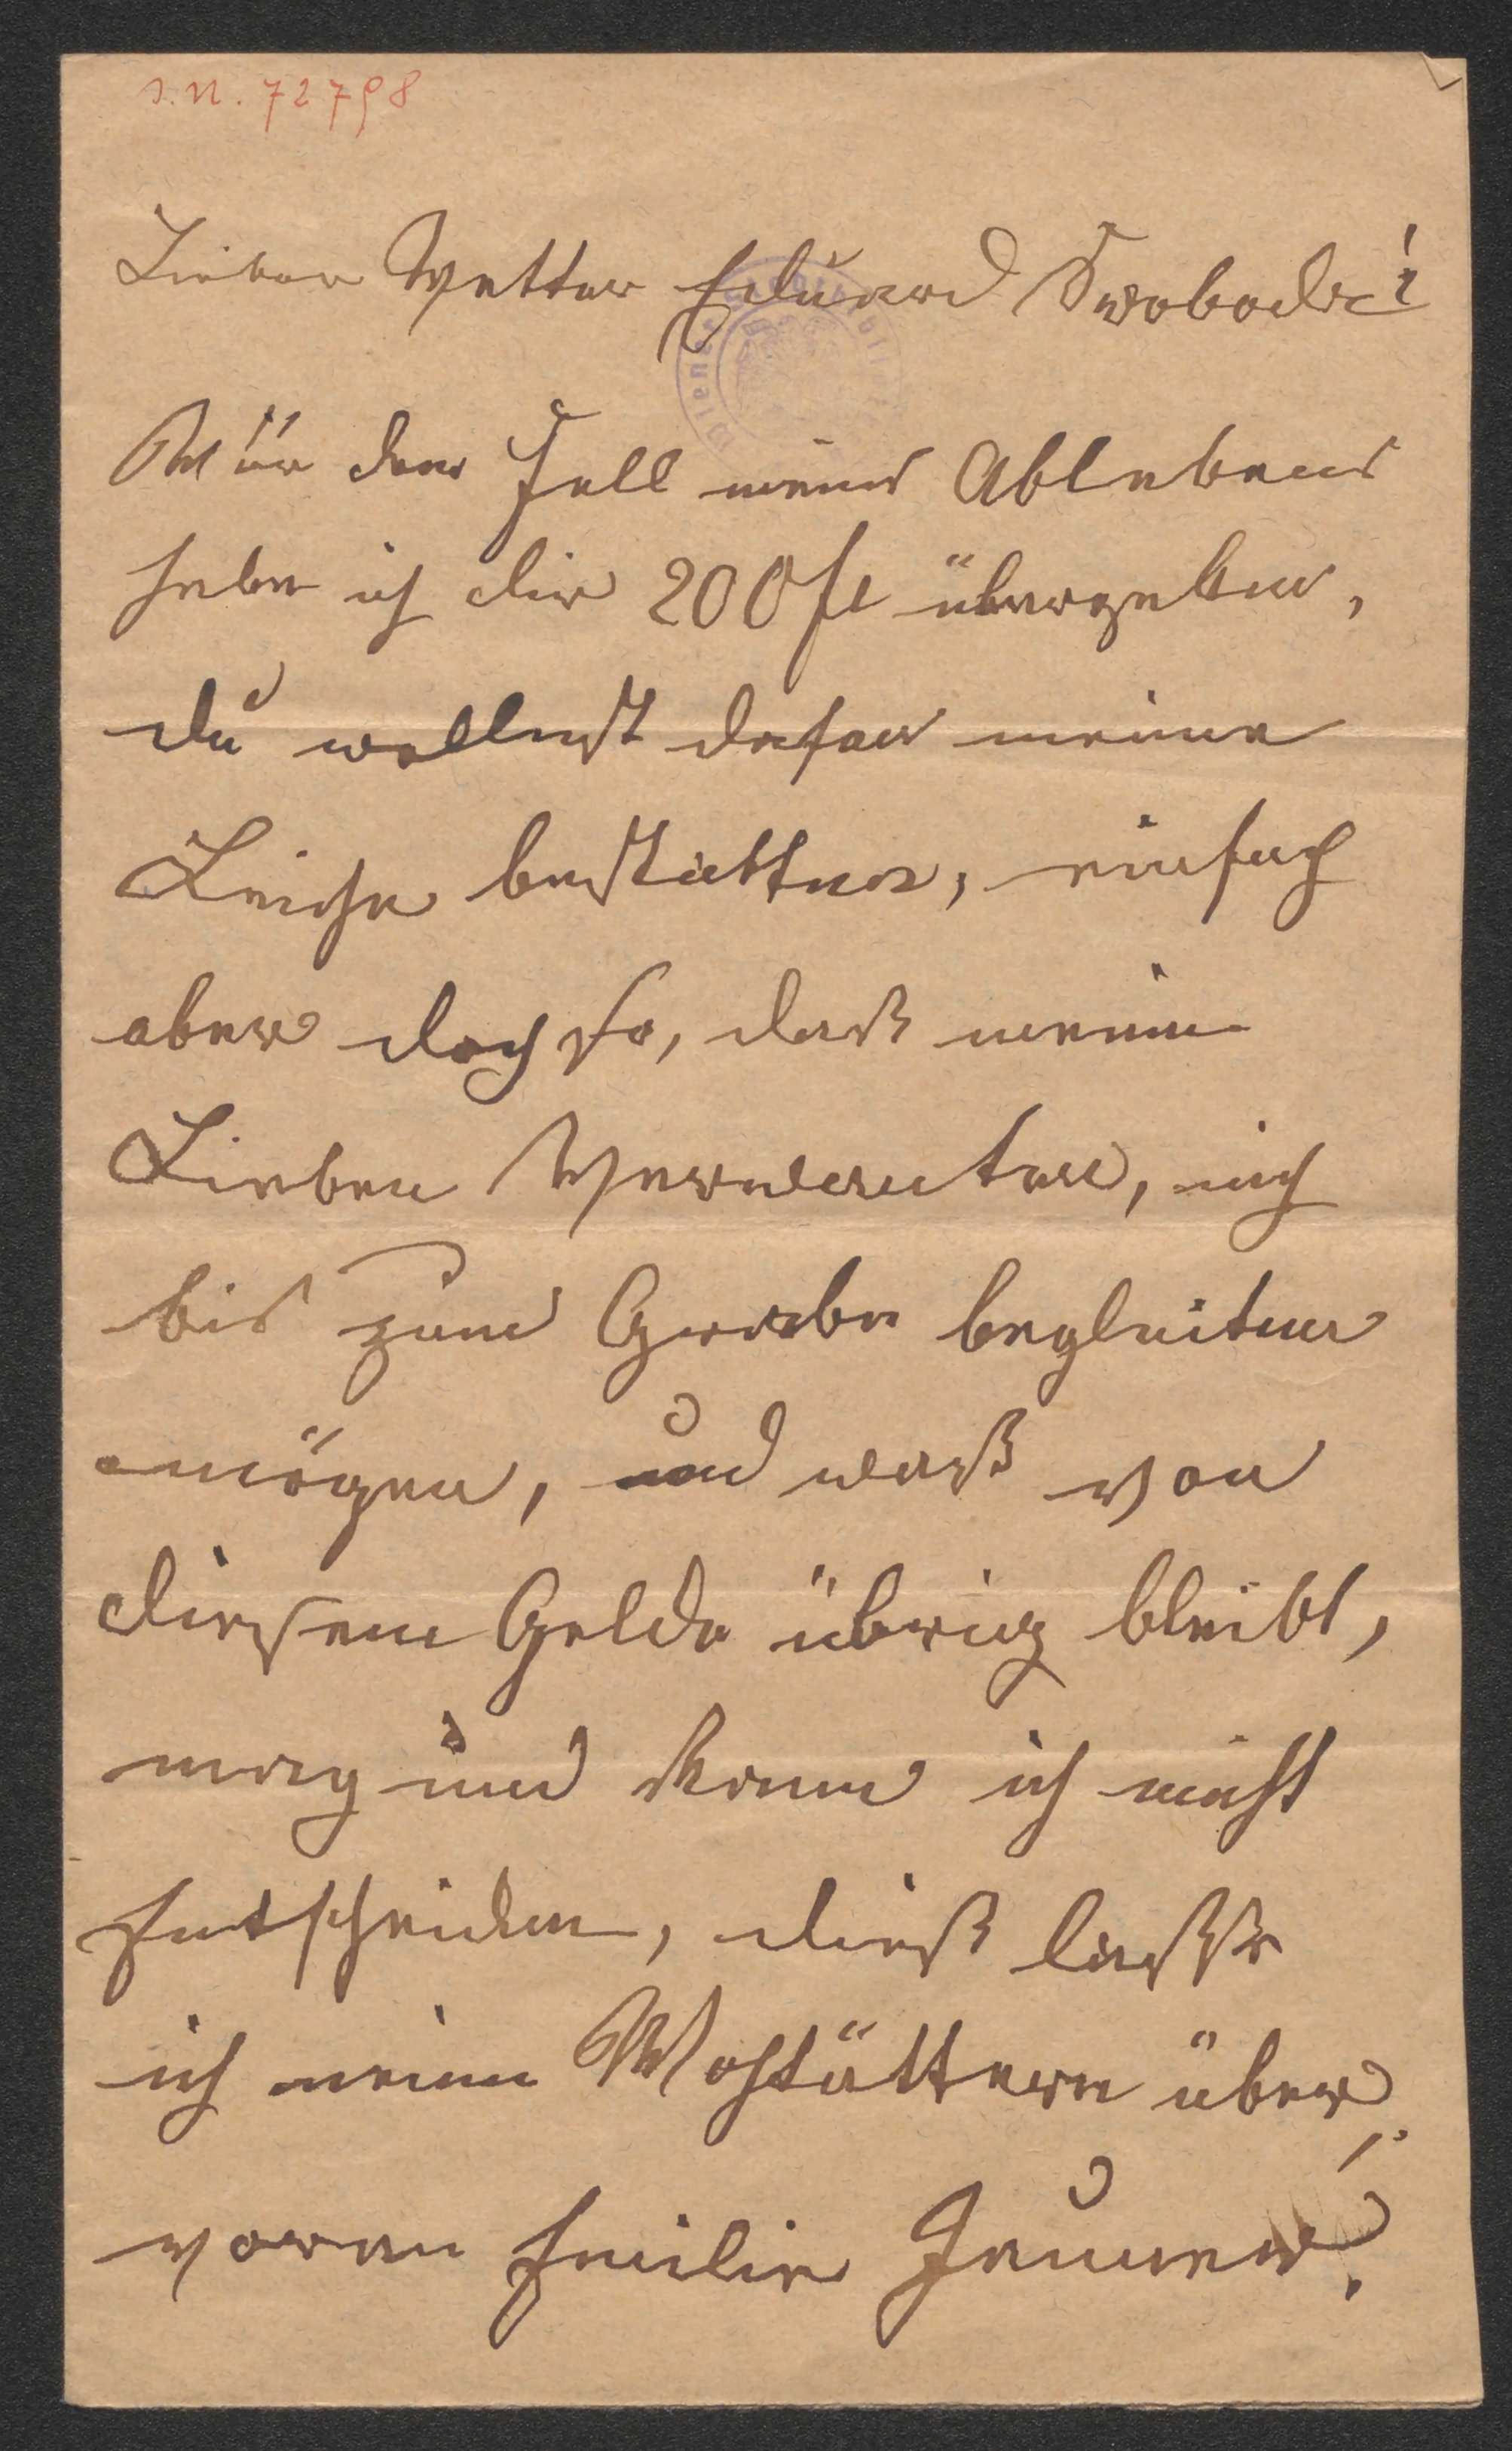 J.N. 72798
Lieber Vetter Eduard Swoboda!
Für den Fall meines Ablebens
habe ich dir 200 fl übergeben,
du wollest dafon meine
Leiche bestatten, einfach
aber doch so, daß meine
Lieben Verwanten, mich
bis zum Grabe begleiten
mögen, und waß von
diesem Gelde übrig bleibt,
mag und kann ich nicht
Entscheiden, dieß lasse
ich meinen über,
voran Emilie